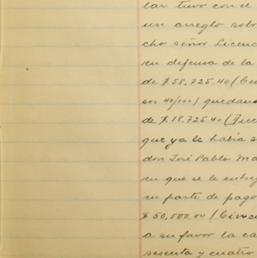 lar tuvo con el
un arreglo sobr
cho señor Licenc
su defensa de la
de $58,725.40 (Cin
sos 40/100) quedand
de $18.725.40 (Diec
que ya le había s
don José Pablo Ma
en que se le entreg
su parte de pago
$50,000.00 (Cincu
a su favor la ca
sesenta y cuatro